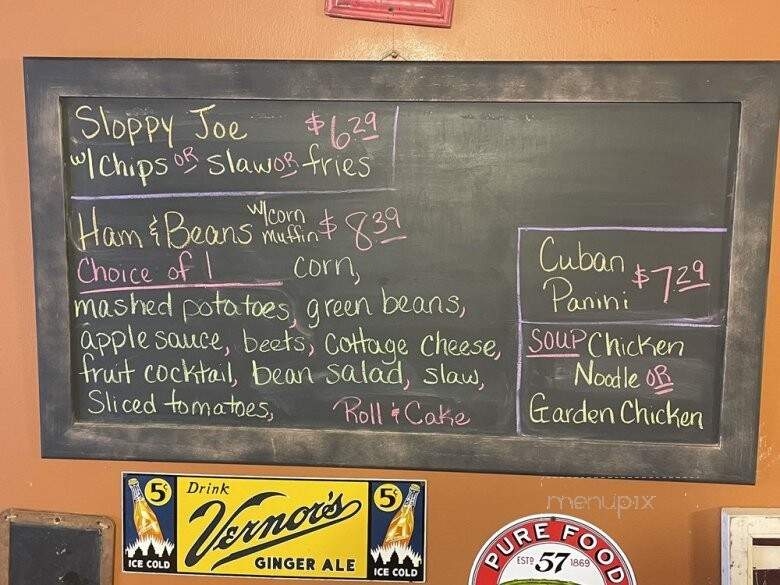 Sloppy Joe $6.29
w/ Chips OR Slaw OR fries
Ham & Beans w/corn muffin $8.39
Choice of 1 corn,
mashed potatoes, green beans,
apple sauce, beets, cottage cheese,
fruit cocktail, bean salad, slaw,
Sliced tomatoes, Roll & Cake
Cuban
Panini $7.29
SOUP Chicken
Noodle OR
Garden Chicken
menupix
5¢ Drink 5¢
Vernor's
GINGER ALE
ICE COLD ICE COLD
PURE FOOD
ESTD 57 1869